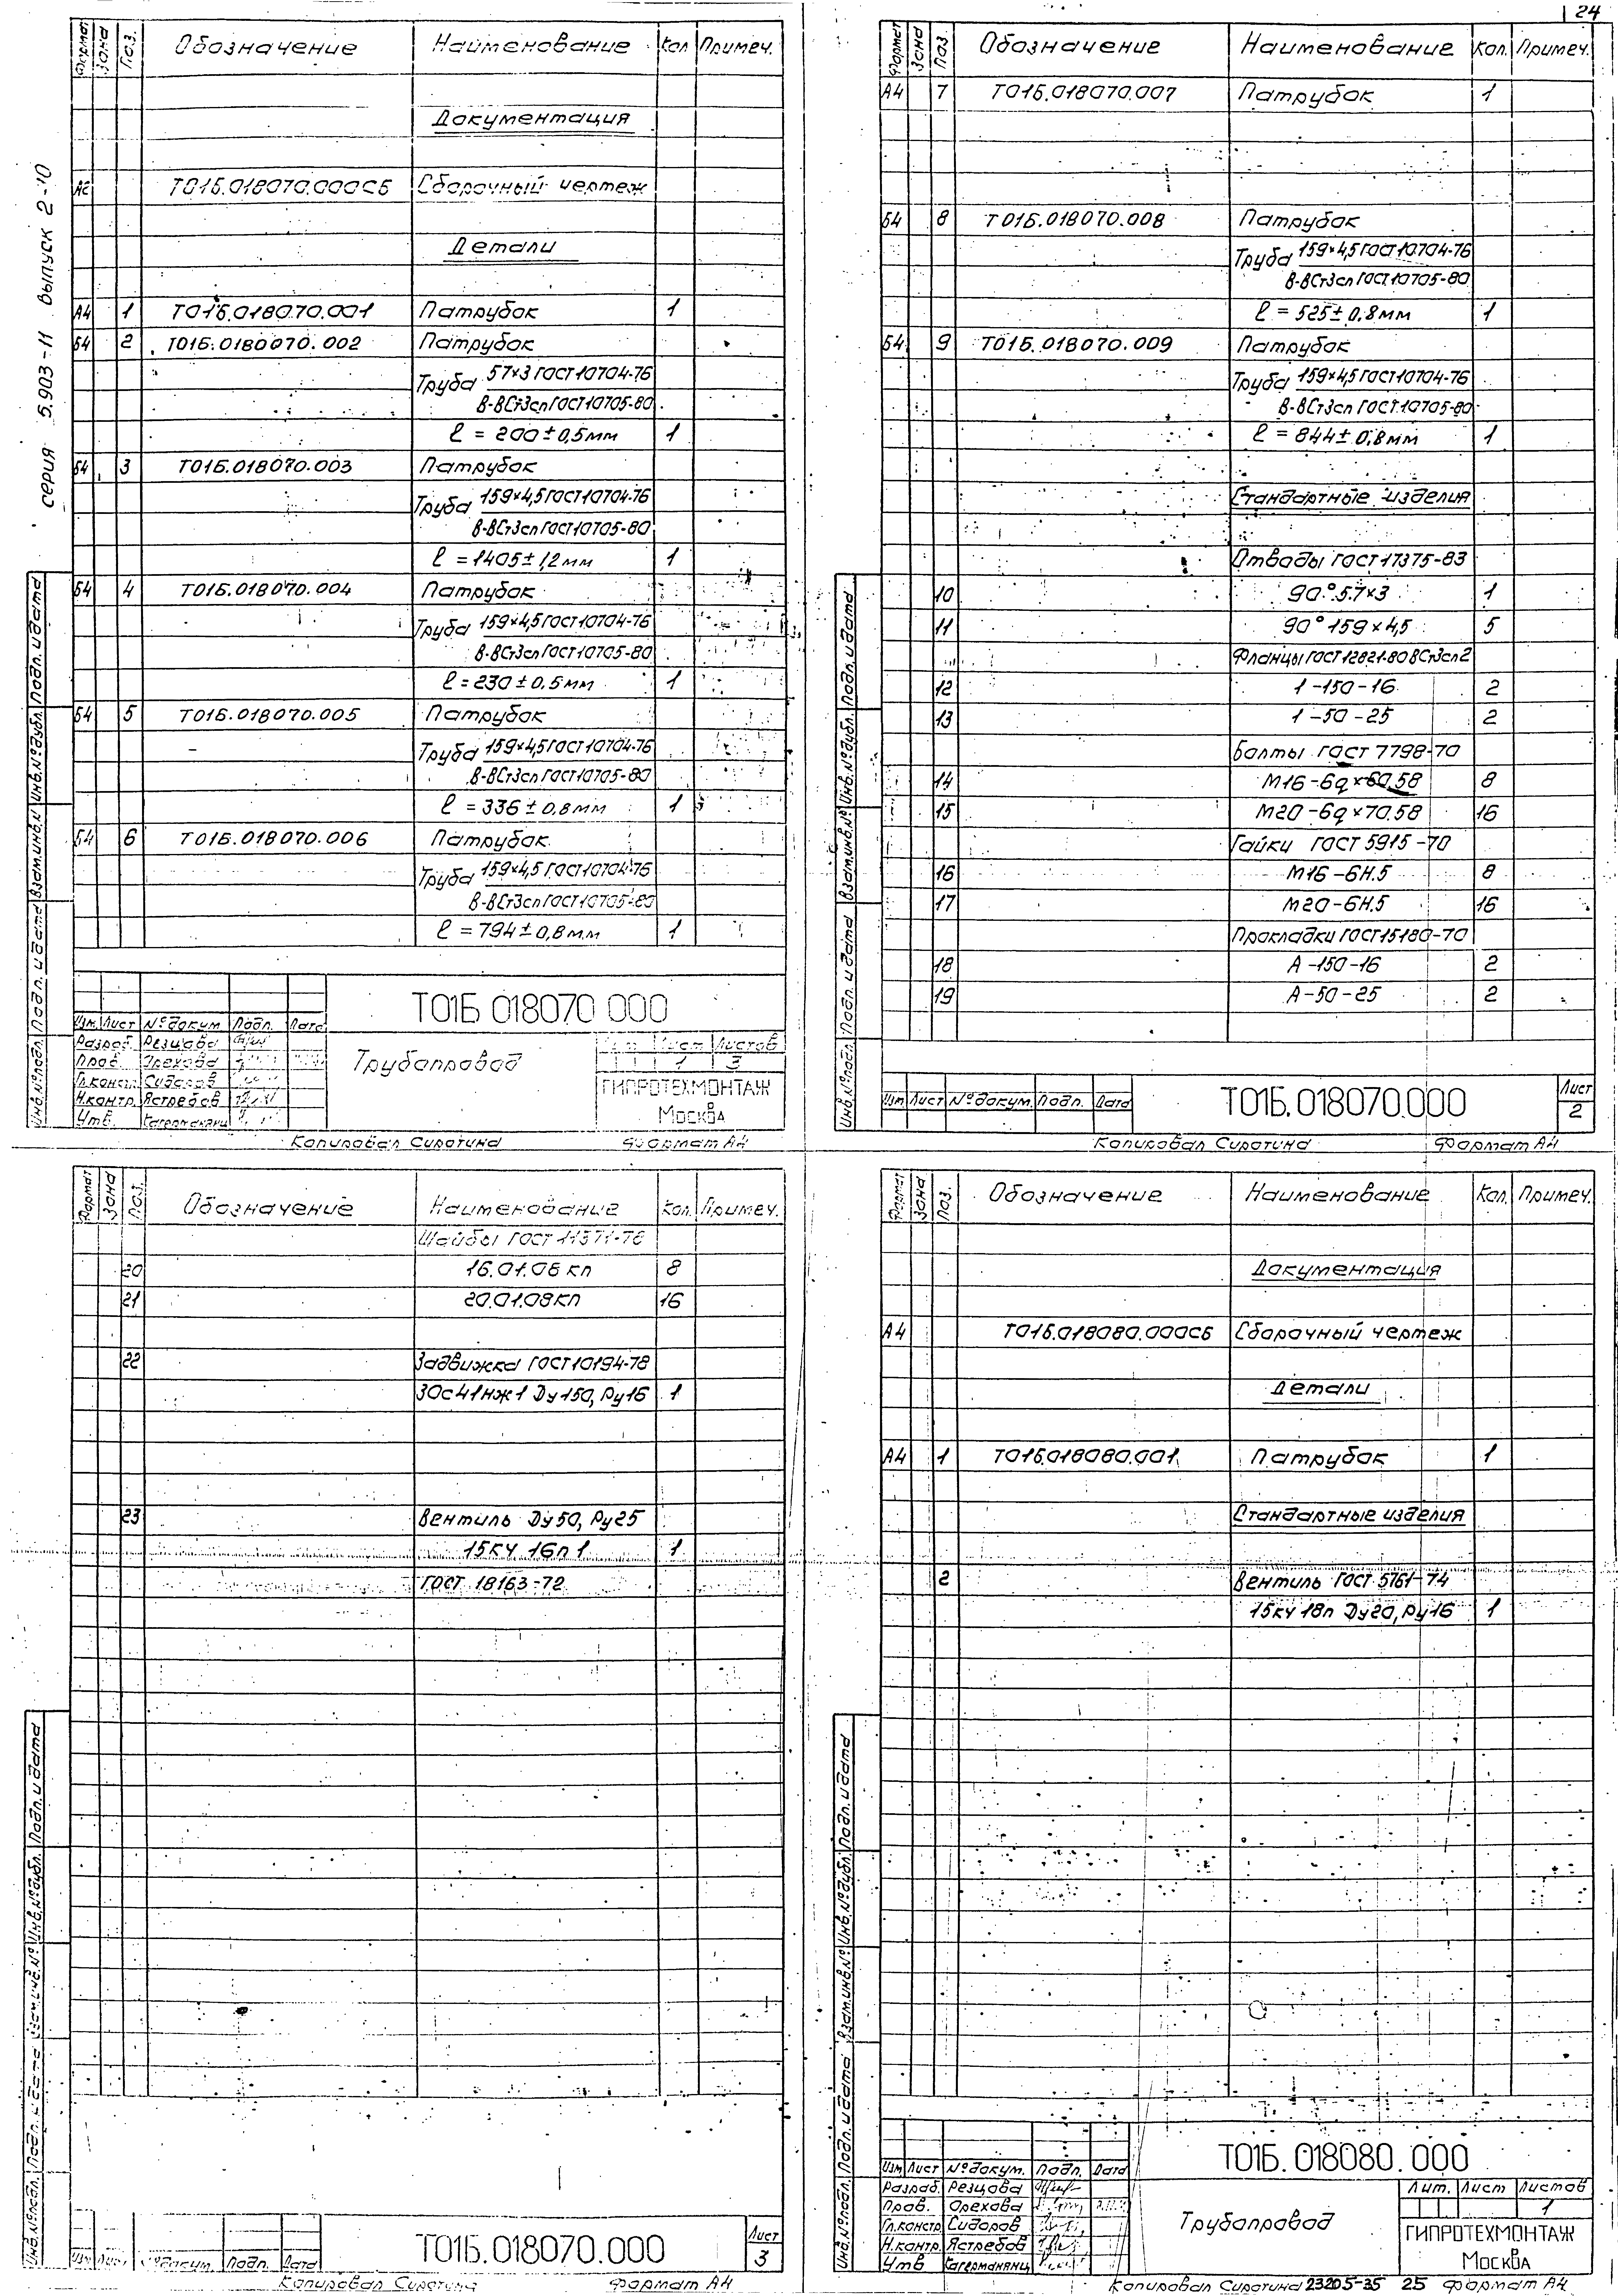 24
серия 5.903-11 выпуск 2-10
Формат Зона Поз. Обозначение Наименование Кол. Примеч.
Документация
А2 Т01Б.018070.000СБ Сборочный чертеж
Детали
А4 1 Т01Б.018070.001 Патрубок 1
Б4 2 Т01Б.0180070.002 Патрубок
Труба 57×3 ГОСТ 10704-76
В-ВСт3сп ГОСТ 10705-80
ℓ = 200±0,5мм 1
Б4 3 Т01Б.018070.003 Патрубок
Труба 159×4,5 ГОСТ 10704-76
В-ВСт3сп ГОСТ 10705-80
ℓ = 1405±1,2мм 1
Б4 4 Т01Б.018070.004 Патрубок
Труба 159×4,5 ГОСТ 10704-76
В-ВСт3сп ГОСТ 10705-80
ℓ = 230±0,5мм 1
Б4 5 Т01Б.018070.005 Патрубок
Труба 159×4,5 ГОСТ 10704-76
В-ВСт3сп ГОСТ 10705-80
ℓ = 336±0,8мм 1
Б4 6 Т01Б.018070.006 Патрубок
Труба 159×4,5 ГОСТ 10704-76
В-ВСт3сп ГОСТ 10705-80
ℓ = 794±0,8мм 1
Инв.№подл. Подп. и дата Взам.инв.№ Инв.№дубл. Подп. и дата
Т01Б 018070 000
Изм. Лист №докум. Подп. Дата
Разраб. Резцова
Пров. Орехова
Гл.констр. Сидоров
Н.контр. Ястребов
Утв.
Трубопровод
Лит. Лист Листов
1 3
ГИПРОТЕХМОНТАЖ
Москва
Копировал Сиротина Формат А4
Формат Зона Поз. Обозначение Наименование Кол. Примеч.
А4 7 Т01Б.018070.007 Патрубок 1
Б4 8 Т01Б.018070.008 Патрубок
Труба 159×4,5 ГОСТ 10704-76
В-ВСт3сп ГОСТ 10705-80
ℓ = 525±0,8мм 1
Б4 9 Т01Б.018070.009 Патрубок
Труба 159×4,5 ГОСТ 10704-76
В-ВСт3сп ГОСТ 10705-80
ℓ = 844±0,8мм 1
Стандартные изделия
Отводы ГОСТ 17375-83
10 90° 57×3 1
11 90° 159×4,5 5
Фланцы ГОСТ 12821-80 ВСт3сп2
12 1-150-16 2
13 1-50-25 2
Болты ГОСТ 7798-70
14 М16-6g×60.58 8
15 М20-6g×70.58 16
Гайки ГОСТ 5915-70
16 М16-6Н.5 8
17 М20-6Н.5 16
Прокладки ГОСТ 15180-70
18 А-150-16 2
19 А-50-25 2
Инв.№подл. Подп. и дата Взам.инв.№ Инв.№дубл. Подп. и дата
Изм. Лист №докум. Подп. Дата
Т01Б.018070.000
Лист
2
Копировал Сиротина Формат А4
Формат Зона Поз. Обозначение Наименование Кол. Примеч.
Шайбы ГОСТ 11371-78
20 16.01.08кп 8
21 20.01.08кп 16
22 Задвижка ГОСТ 10194-78
30с41нж1 Ду150, Ру16 1
23 Вентиль Ду50, Ру25
15кч 16п1 1
ГОСТ 18163-72
Инв.№подл. Подп. и дата Взам.инв.№ Инв.№дубл. Подп. и дата
Изм. Лист №докум. Подп. Дата
Т01Б.018070.000
Лист
3
Копировал Сиротина Формат А4
Формат Зона Поз. Обозначение Наименование Кол. Примеч.
Документация
А4 Т01Б.018080.000СБ Сборочный чертеж
Детали
А4 1 Т01Б.018080.001 Патрубок 1
Стандартные изделия
2 Вентиль ГОСТ 5761-74
15кч 18п Ду20, Ру16 1
Инв.№подл. Подп. и дата Взам.инв.№ Инв.№дубл. Подп. и дата
Т01Б.018080.000
Изм. Лист №докум. Подп. Дата
Разраб. Резцова
Пров. Орехова
Гл.констр. Сидоров
Н.контр. Ястребов
Утв.
Трубопровод
Лит. Лист Листов
1
ГИПРОТЕХМОНТАЖ
Москва
Копировал Сиротина 23205-35 25 Формат А4